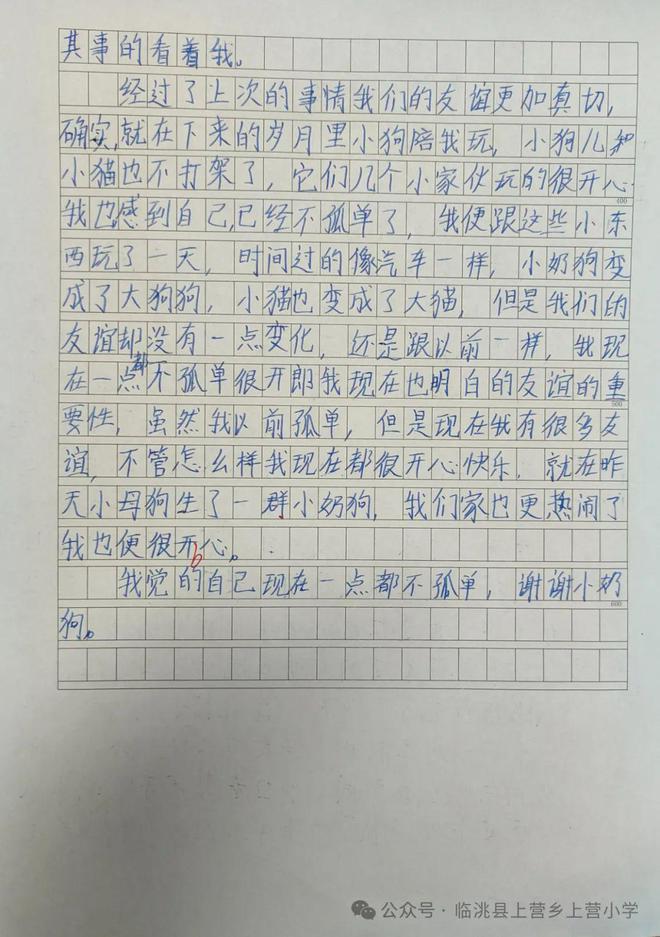 其事的看着我。
经过了上次的事情我们的友谊更加真切,
确实,就在下来的岁月里小狗陪我玩, 小狗儿和
小猫也不打架了, 它们几个小家伙玩的很开心
400
我也感到自己,已经不孤单了, 我便跟这些小东
西玩了一天, 时间过的像汽车一样, 小奶狗变
成了大狗狗, 小猫也变成了大猫, 但是我们的
友谊却没有一点变化, 还是跟以前一样, 我现
在一点都不孤单很开即我现在也明白的友谊的重
500
要性, 虽然我以前孤单, 但是现在我有很多友
谊, 不管怎么样我现在都很开心快乐. 就在昨
天小母狗生了一群小奶狗, 我们家也更热闹了
我也便很开心。
我觉的自己现在一点都不孤单, 谢谢小奶
600
狗。
公众号·临洮县上营乡上营小学